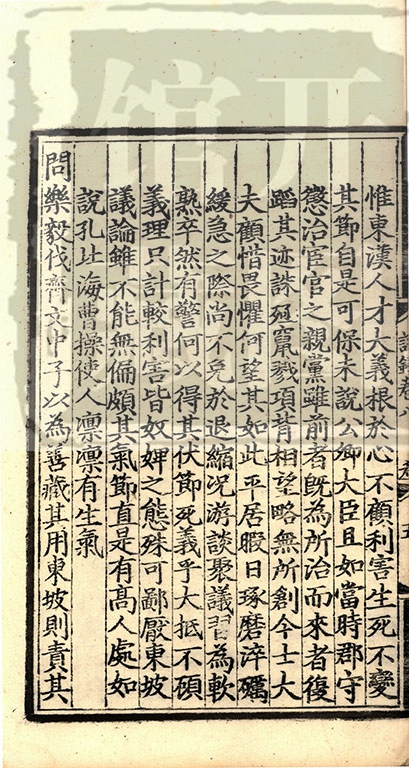 惟東漢人才大義根於心不顧利害生死不變
其節自是可保未說公卿大臣且如當時郡守
懲治宦官之親黨雖前者既為所治而來者復
蹈其迹誅殛竄戮項背相望略無所創今士大
夫顧惜畏懼何望其如此平居暇日琢磨淬礪
緩急之際尚不免於退縮況游談聚議習為軟
熟卒然有警何以得其伏節死義乎大抵不顧
義理只計較利害皆奴婢之態殊可鄙厭東坡
議論雖不能無偏頗其氣節直是有高人處如
說孔北海曹操使人凛凛有生氣
問樂毅伐齊文中子以為善藏其用東坡則責其